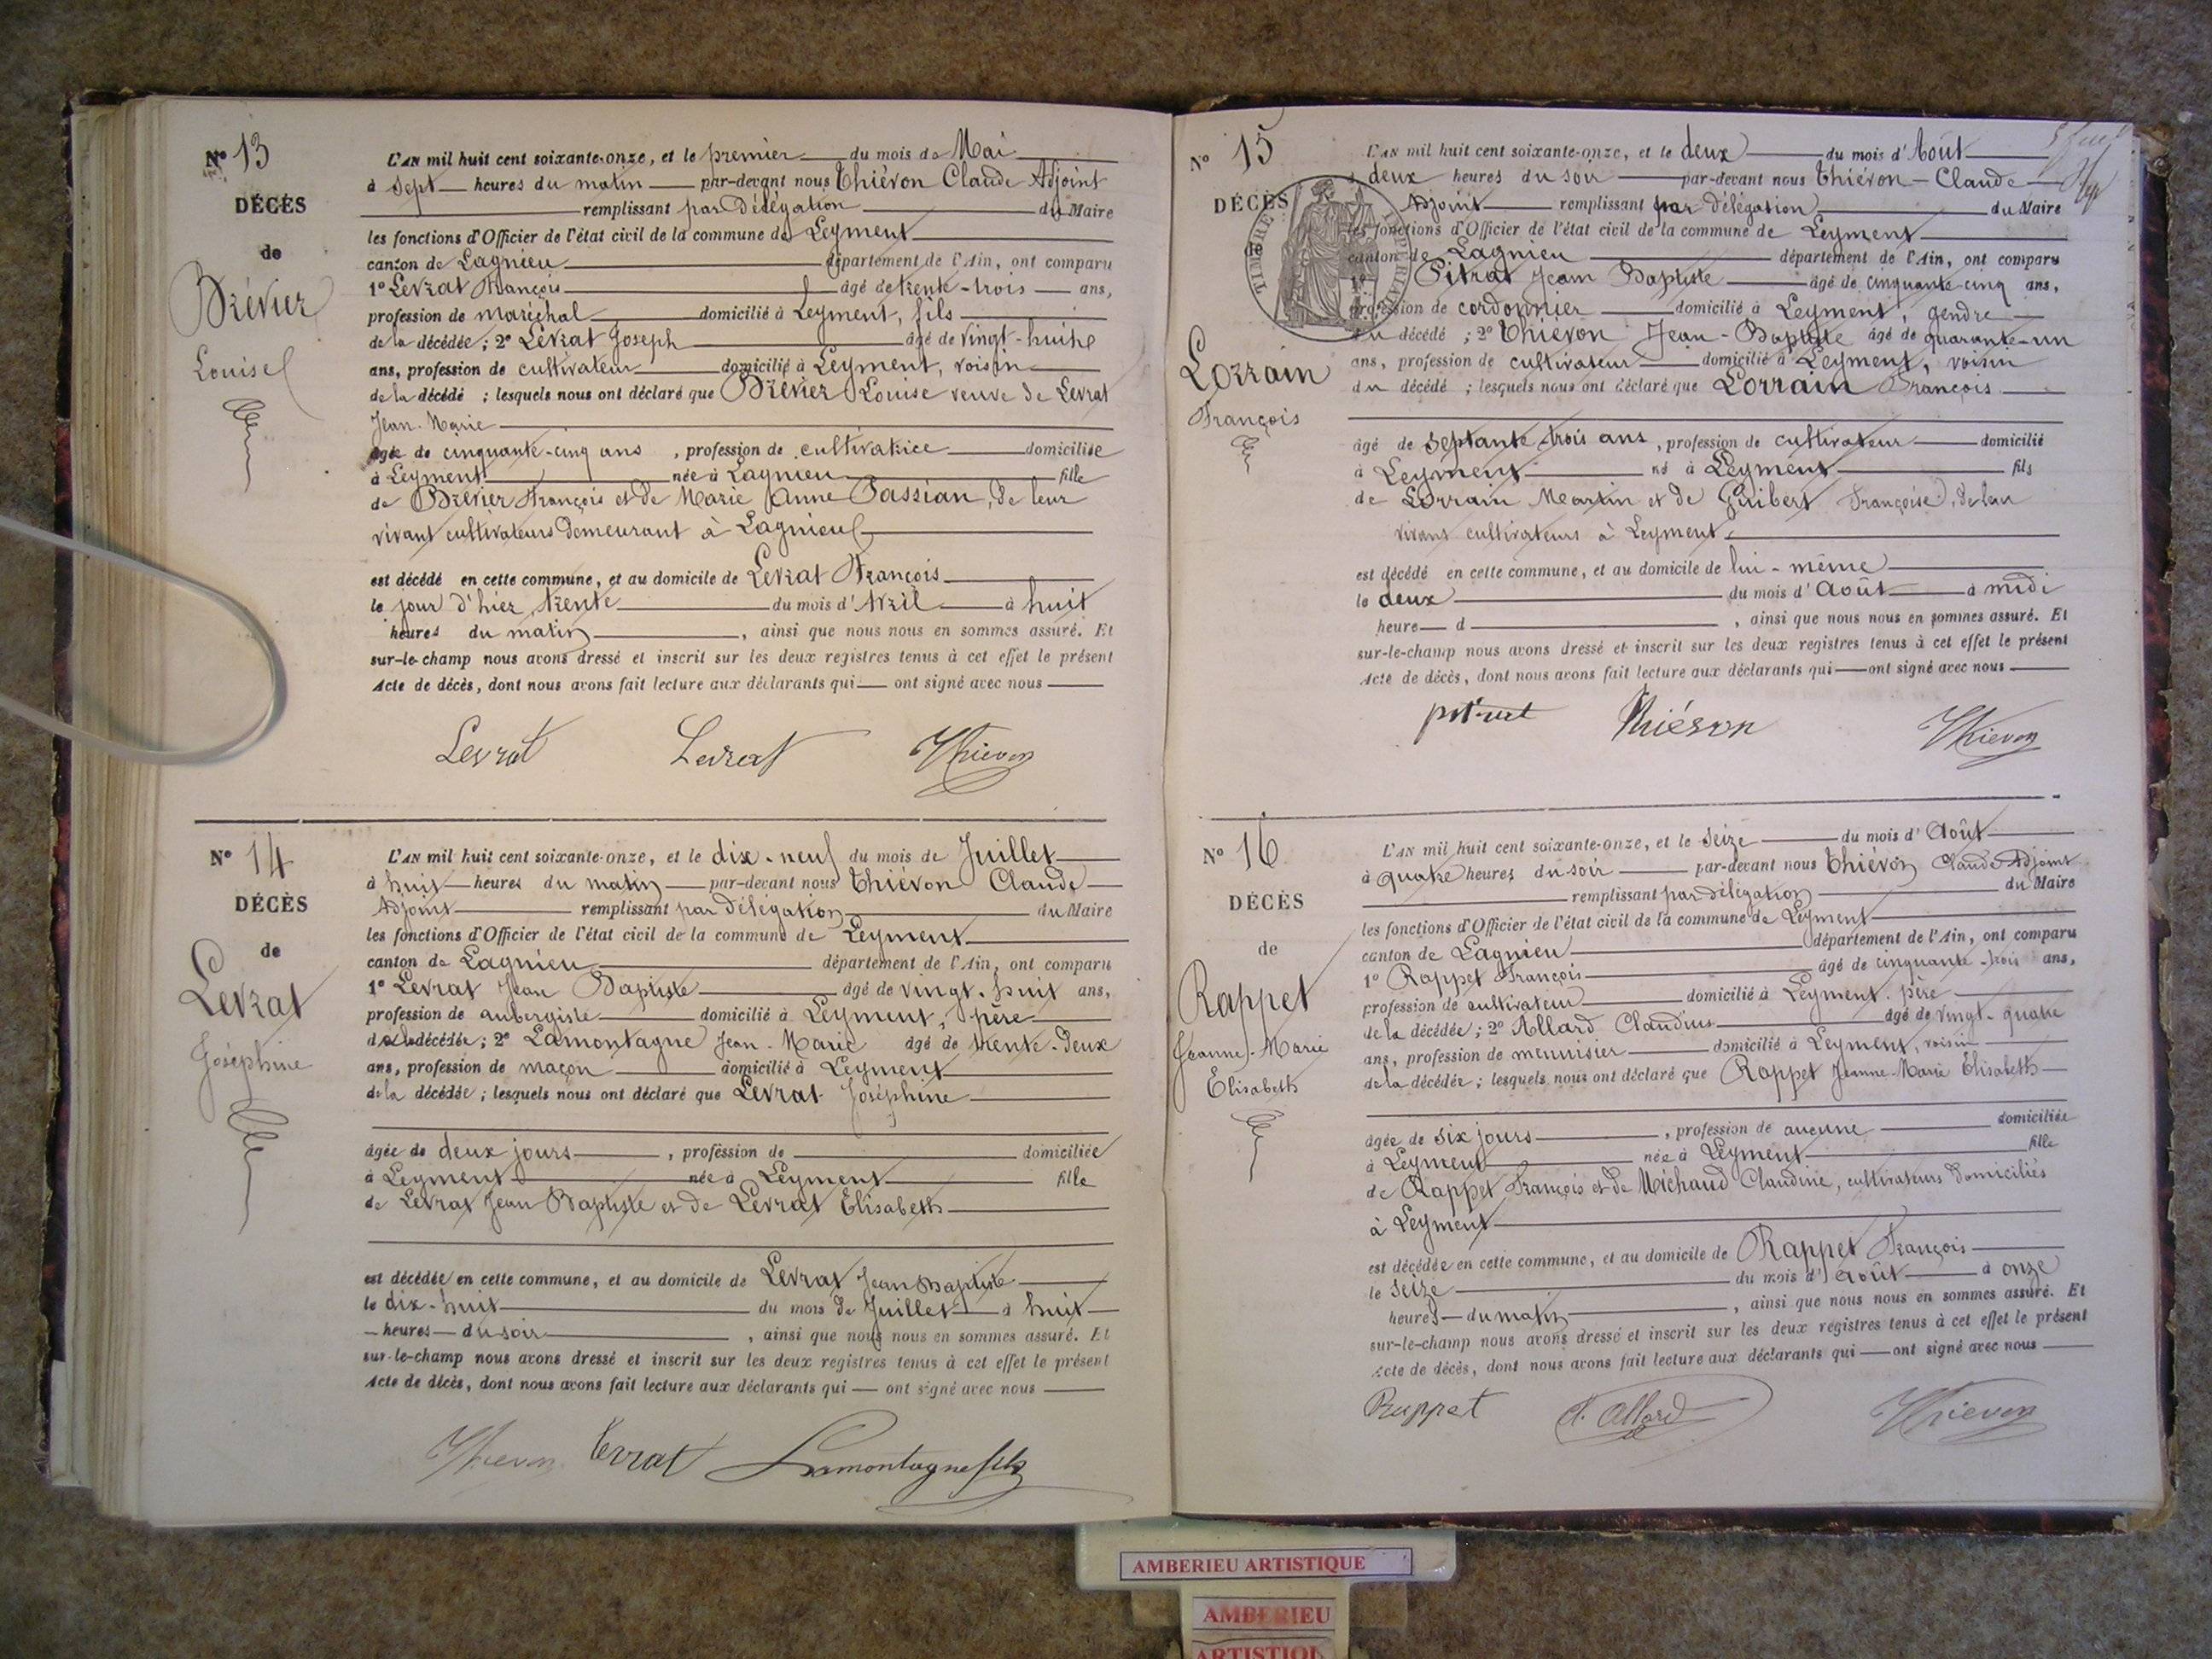 Nº 13
DÉCÈS
de
Brévier
Louise
L'AN mil huit cent soixante-onze, et le premier du mois de Mai
à sept heures du matin par-devant nous Thiévon Claude Adjoint
remplissant par Délégation du Maire
les fonctions d'Officier de l'état civil de la commune de Leyment
canton de Lagnieu département de l'Ain, ont comparu
1º Levrat François âgé de trente-trois ans,
profession de maréchal domicilié à Leyment, fils
de la décédée ; 2º Levrat Joseph âgé de vingt-huit
ans, profession de cultivateur domicilié à Leyment, voisin
de la décédé ; lesquels nous ont déclaré que Brévier Louise veuve de Levrat
Jean-Marie
âgée de cinquante-cinq ans, profession de cultivatrice domiciliée
à Leyment née à Lagnieu fille
de Brévier François et de Marie Anne Passian, de leur
vivant cultivateurs demeurant à Lagnieu
est décédé en cette commune, et au domicile de Levrat François
le jour d'hier, trente du mois d'Avril à huit
heures du matin, ainsi que nous nous en sommes assuré. Et
sur-le-champ nous avons dressé et inscrit sur les deux registres tenus à cet effet le présent
Acte de décès, dont nous avons fait lecture aux déclarants qui ont signé avec nous
Levrat Levrat Thievon
Nº 14
DÉCÈS
de
Levrat
Joséphine
L'AN mil huit cent soixante-onze, et le dix-neuf du mois de Juillet
à huit heures du matin par-devant nous Thiévon Claude
Adjoint remplissant par délégation du Maire
les fonctions d'Officier de l'état civil de la commune de Leyment
canton de Lagnieu département de l'Ain, ont comparu
1º Levrat Jean Baptiste âgé de vingt-huit ans,
profession de aubergiste domicilié à Leyment, père
de la décédée ; 2º Lamontagne Jean-Marie âgé de trente-deux
ans, profession de maçon domicilié à Leyment
de la décédée ; lesquels nous ont déclaré que Levrat Joséphine
âgée de deux jours, profession de domiciliée
à Leyment née à Leyment fille
de Levrat Jean Baptiste et de Levrat Elisabeth
est décédée en cette commune, et au domicile de Levrat Jean Baptiste
le dix-huit du mois de Juillet à huit
heures du soir, ainsi que nous nous en sommes assuré. Et
sur-le-champ nous avons dressé et inscrit sur les deux registres tenus à cet effet le présent
Acte de décès, dont nous avons fait lecture aux déclarants qui ont signé avec nous
Thievon Levrat Lamontagne fils
Nº 15
DÉCÈS
de
Lorrain
François
TIMBRE IMPÉRIAL
L'AN mil huit cent soixante-onze, et le deux du mois d'Août
à deux heures du soir par-devant nous Thiévon Claude
Adjoint remplissant par délégation du Maire
les fonctions d'Officier de l'état civil de la commune de Leyment
canton de Lagnieu département de l'Ain, ont comparu
1º Pitrat Jean Baptiste âgé de cinquante-cinq ans,
profession de cordonnier domicilié à Leyment, gendre
du décédé ; 2º Thiévon Jean-Baptiste âgé de quarante-un
ans, profession de cultivateur domicilié à Leyment, voisin
du décédé ; lesquels nous ont déclaré que Lorrain François
âgé de septante-trois ans, profession de cultivateur domicilié
à Leyment né à Leyment fils
de Lorrain Martin et de Guibert Françoise, de leur
vivant cultivateurs à Leyment
est décédé en cette commune, et au domicile de lui-même
le deux du mois d'Août à midi
heure d, ainsi que nous nous en sommes assuré. Et
sur-le-champ nous avons dressé et inscrit sur les deux registres tenus à cet effet le présent
Acte de décès, dont nous avons fait lecture aux déclarants qui ont signé avec nous
pitrat Thiévon Thievon
Nº 16
DÉCÈS
de
Rappet
Jeanne-Marie
Elisabeth
L'AN mil huit cent soixante-onze, et le seize du mois d'Août
à quatre heures du soir par-devant nous Thiévon Claude Adjoint
remplissant par délégation du Maire
les fonctions d'Officier de l'état civil de la commune de Leyment
canton de Lagnieu département de l'Ain, ont comparu
1º Rappet François âgé de cinquante-trois ans,
profession de cultivateur domicilié à Leyment, père
de la décédée ; 2º Allard Claudius âgé de vingt-quatre
ans, profession de menuisier domicilié à Leyment, voisin
de la décédée ; lesquels nous ont déclaré que Rappet Jeanne-Marie Elisabeth
âgée de six jours, profession de aucune domiciliée
à Leyment née à Leyment fille
de Rappet François et de Michaud Claudine, cultivateurs domiciliés
à Leyment
est décédée en cette commune, et au domicile de Rappet François
le seize du mois d'Août à onze
heures du matin, ainsi que nous nous en sommes assuré. Et
sur-le-champ nous avons dressé et inscrit sur les deux registres tenus à cet effet le présent
Acte de décès, dont nous avons fait lecture aux déclarants qui ont signé avec nous
Rappet Allard Thievon
AMBERIEU ARTISTIQUE
AMBERIEU